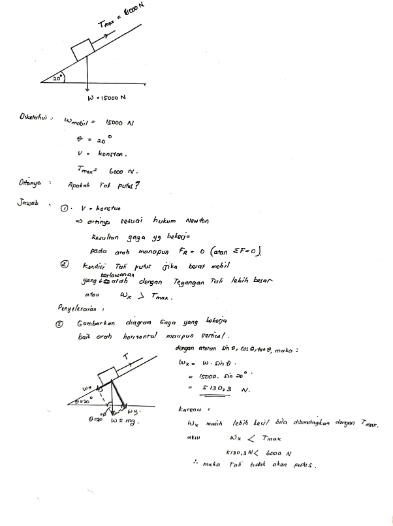 Tmax = 6000 N
20°
W = 15000 N
Diketahui : Wmobil = 15000 N
θ = 20°
V = konstan.
Tmax = 6000 N.
Ditanya : Apakah Tali putus?
Jawab : ① . V = konstan
⇒ artinya sesuai hukum Newton
Resultan gaya yg bekerja
pada arah manapun FR = 0 (atau ΣF=0)
② Kondisi Tali putus jika berat mobil
berlawanan
yang arah dengan Tegangan Tali lebih besar
atau Wx > Tmax.
Penyelesaian :
③ Gambarkan diagram Gaya yang bekerja
baik arah horizontal maupun vertical.
dengan aturan sin θ, cos θ, tan θ, maka :
Wx = W . Sin θ .
= 15000. Sin 20°.
= 5130,3 N.
T
Wx
θ=20°
Wy
θ=20° W = mg.
Karena :
Wx masih lebih kecil bila dibandingkan dengan Tmax.
atau Wx < Tmax
5130,3 N < 6000 N
∴ maka Tali tidak akan putus.